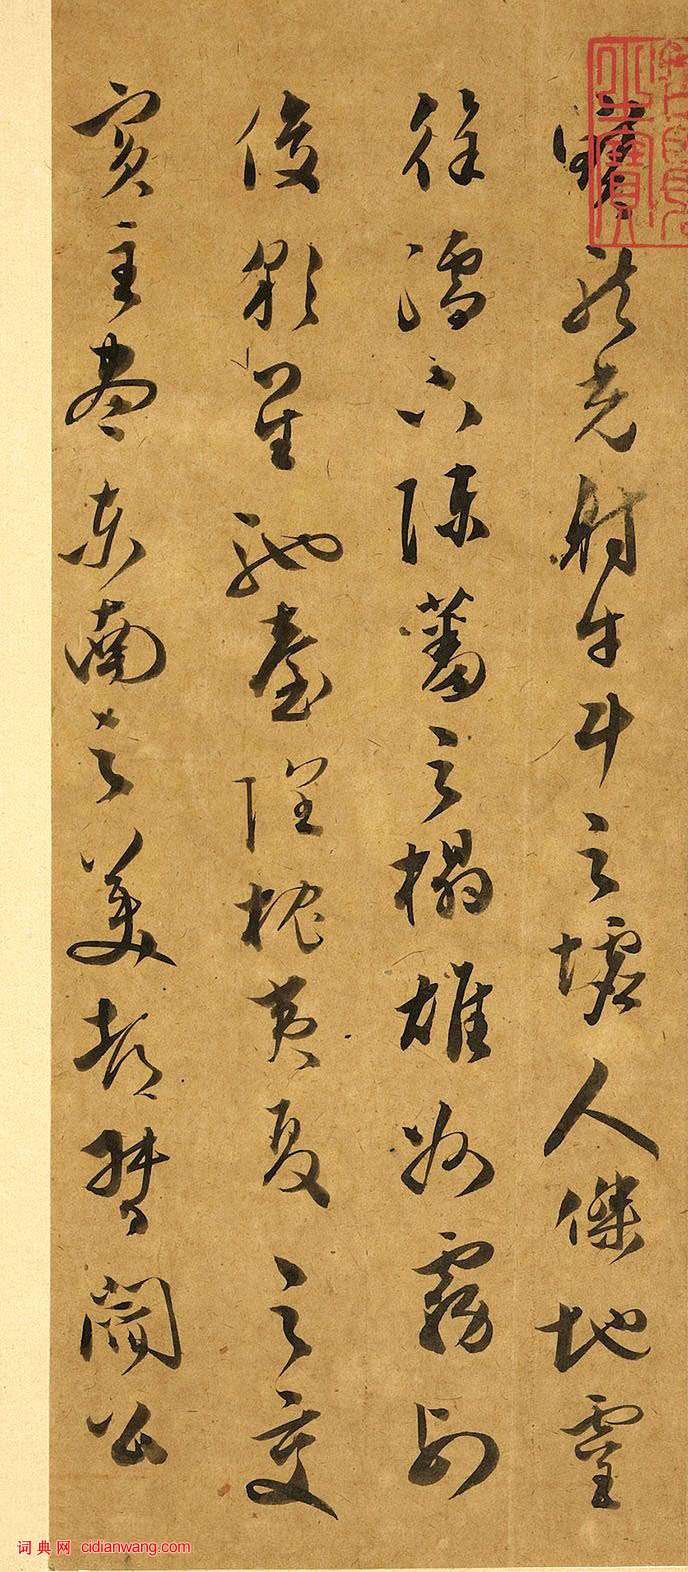 寶龍光射牛斗之墟人傑地靈
徐孺下陳蕃之榻雄州霧列
俊彩星馳臺隍枕夷夏之交
賓主盡東南之美都督閻公
词典网 cidianwang.com